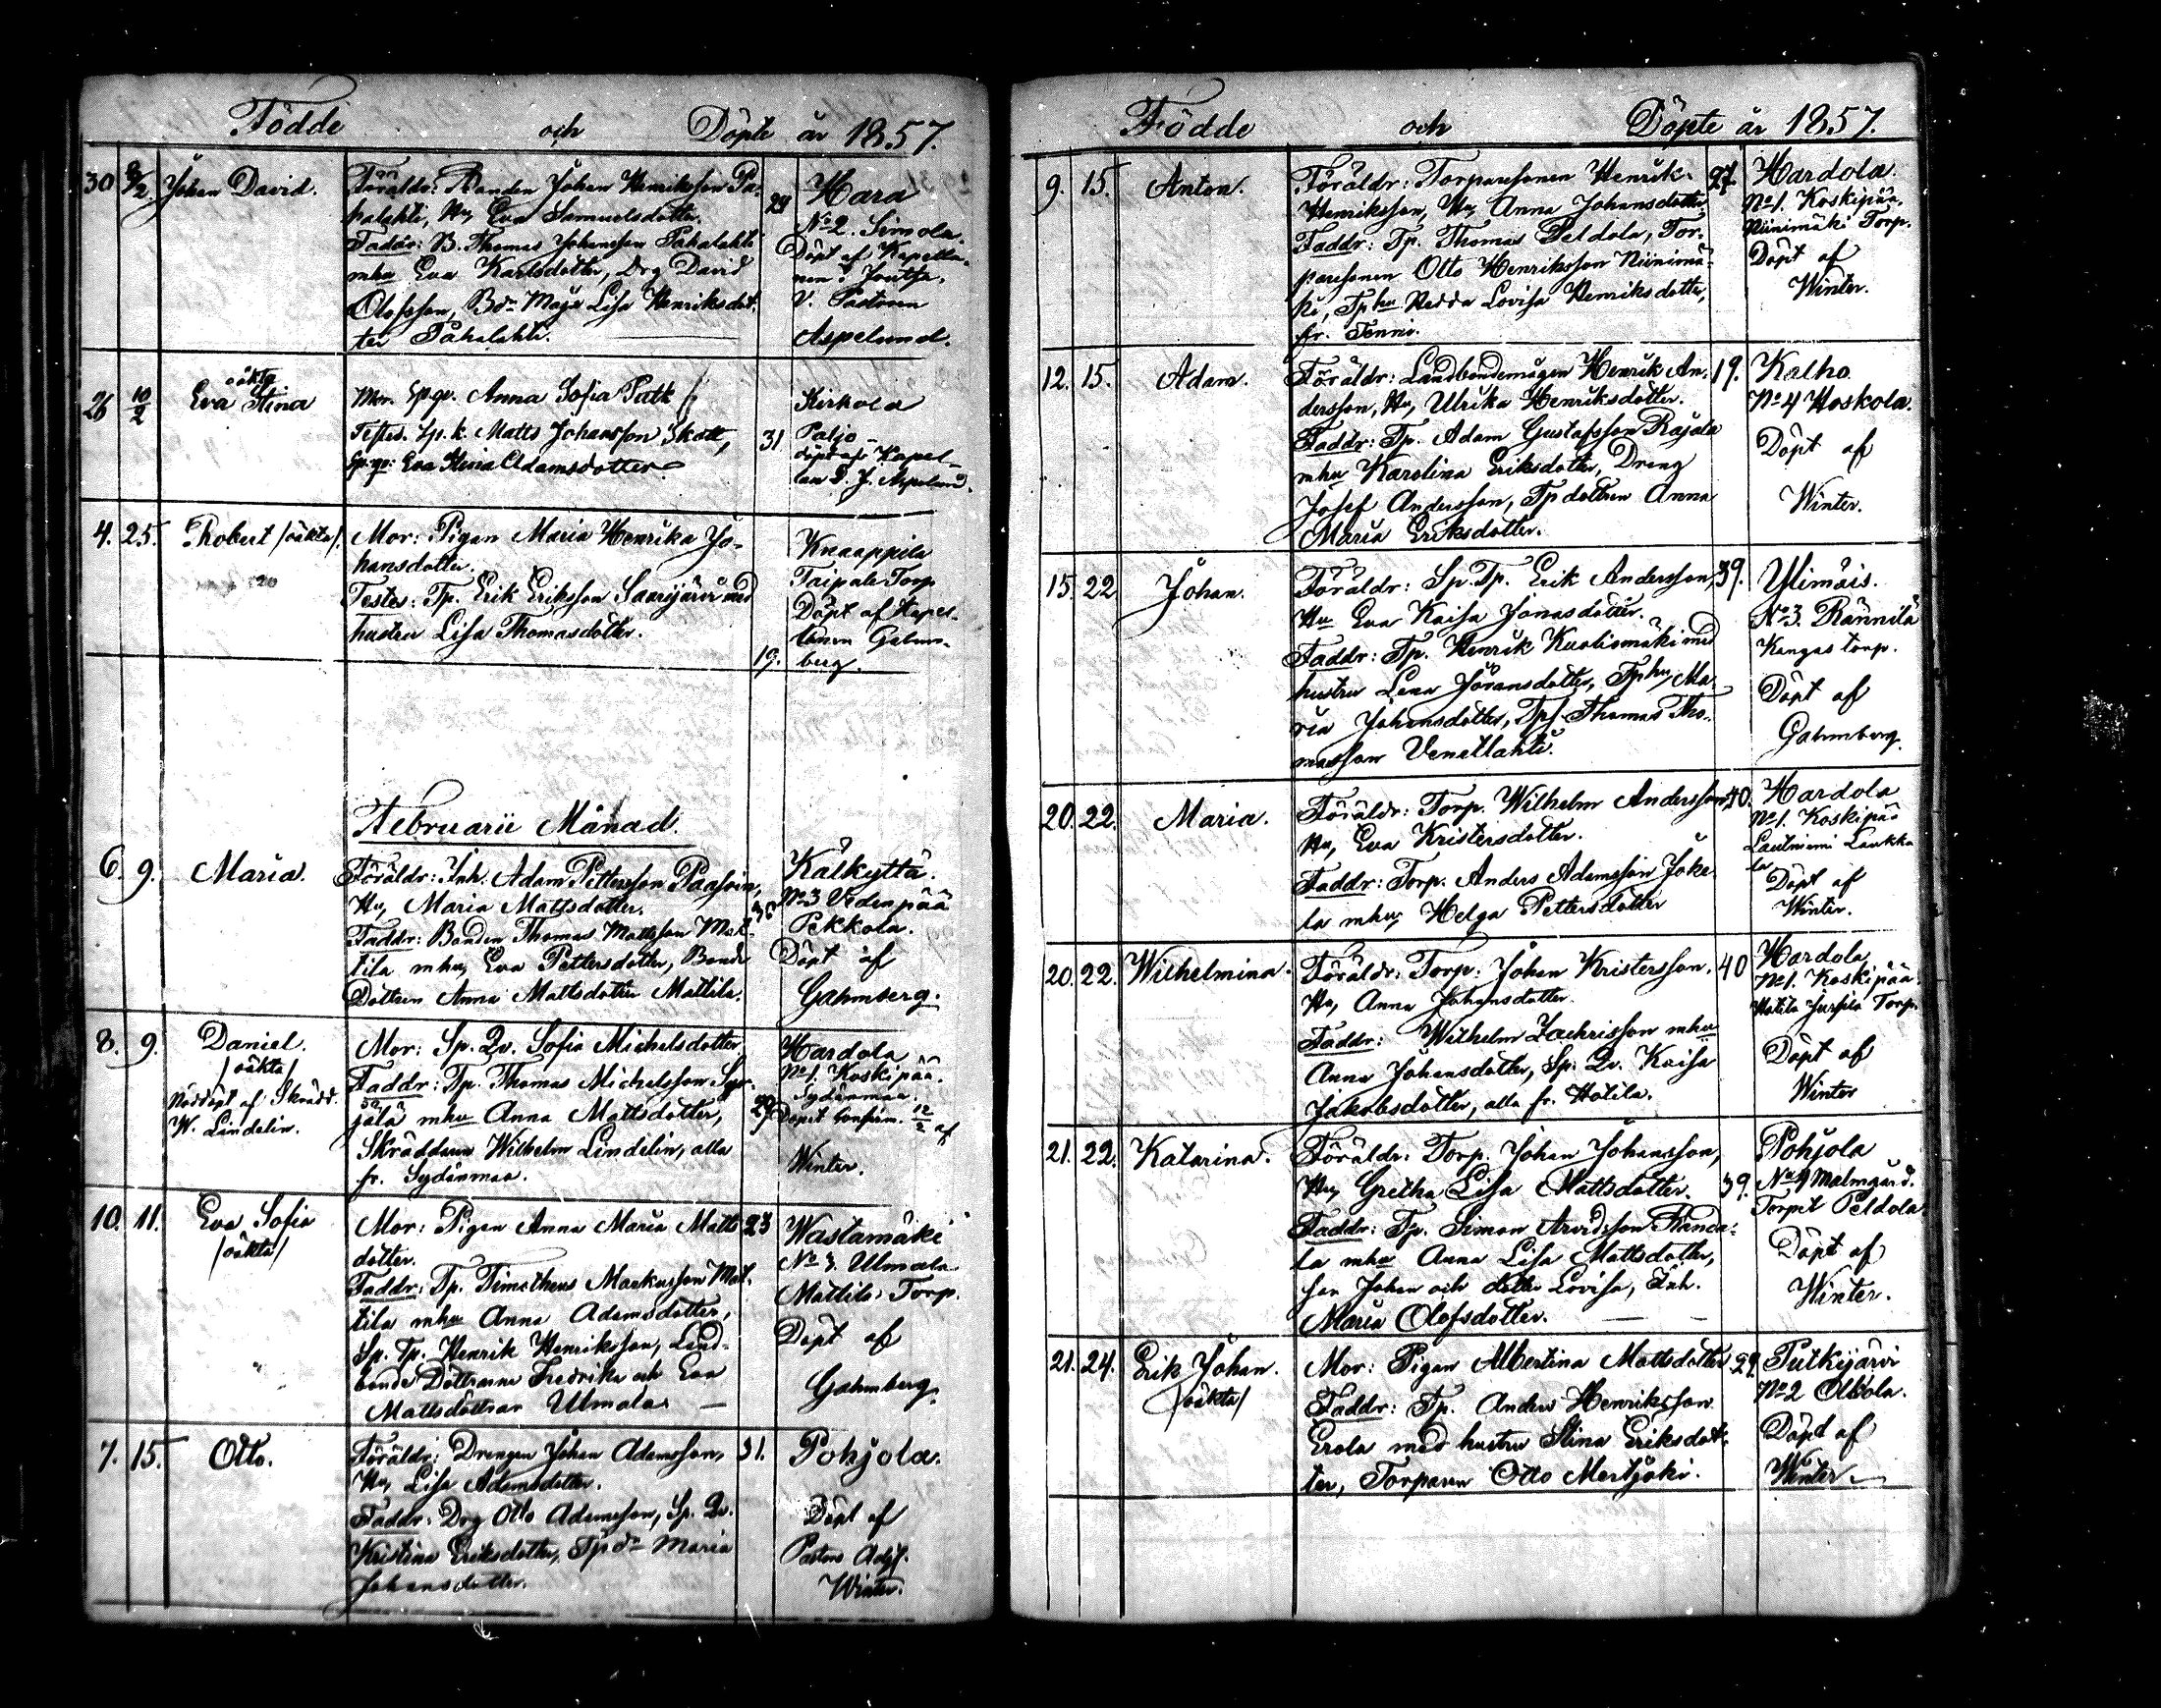 Födde och Döpte år 1857.
30 8/2 Johan David.
Föräldr: Bonden Johan Henriksson Pa-
halahti, Hu, Eva Samuelsdotter.
Faddr: B. Thomas Johansson Pahalahti
mhu Eva Karlsdotter, Drg David
Olofsson, Bdr Maja Lisa Henriksdot-
ter Pahalahti.
29
Hara
No 2. Simola.
Döpt af Kapella-
nen i Joutsa,
V. Pastoren
Aspelund.
26 10/2 oäkta
Eva Stina
Mor. Sp.qv. Anna Sofia Putk
Testes. Sp.k. Matts Johansson Skött,
Sp.qv: Eva Stina Adamsdotter
31
Kirkola
Paljo
döpt af Kapel-
lan D. J. Aspelund.
4. 25. Robert /oäkta/.
Mor: Pigan Maria Henrika Jo-
hansdotter.
Testes: Tp. Erik Eriksson Saarijärvi med
hustru Lisa Thomasdotter.
19.
Knaappila
Taipale Torp
Döpt af Kapel-
lanen Gahm-
berg.
Februarii Månad.
6. 9. Maria.
Föräldr: Inh. Adam Pettersson Paasoin,
Hu, Maria Mattsdotter.
Faddr: Bonden Thomas Mattsson Mat-
tila mhu, Eva Pettersdotter, Bonde
Dottern Anna Mattsdotter Mattila.
36
Kalkytta.
No 3 Vedenpää
Pekkola.
Döpt af
Gahmberg.
8. 9. Daniel.
/oäkta/
Nöddöpt af Skrädd.
W. Lindelin.
Mor: Sp. Qv. Sofia Michelsdotter
Faddr: Tp. Thomas Michelsson Syr-
jälä mhu Anna Mattsdotter,
Skräddaren Wilhelm Lindelin, alla
fr. Sydänmaa.
27
Hardola
No 1. Koskipää.
Sydänmaa.
Dopet Confirm. 12/2 af
Winter.
10. 11. Eva Sofia
/oäkta/
Mor: Pigan Anna Maria Matts
dotter.
Faddr: Tp. Timotheus Markusson Mat-
tila mhu Anna Adamsdotter,
Sp. Tp. Henrik Henriksson, Land-
bonde Döttrarna Fredrika och Eva
Mattsdöttrar Ulmala.
23
Wastamäki
No 3. Ulmala
Mattila Torp.
Döpt af
Gahmberg.
7. 15. Otto.
Föräldr: Drengen Johan Adamsson,
Hu, Lisa Adamsdotter.
Faddr: Drg Otto Adamsson, Sp. Qv.
Kristina Eriksdotter, Tpdr Maria
Johansdotter.
31.
Pohjola.
Döpt af
Pastors Adj.
Winter.
Födde och Döpte år 1857.
9. 15. Anton.
Föräldr: Torparesonen Henrik
Henriksson, Hu, Anna Johansdotter.
Faddr: Tp. Thomas Peldola, Tor-
paresonen Otto Henriksson Niinimä-
ki, Tphu Hedda Lovisa Henriksdotter,
fr. Tenni.
27.
Hardola.
No 1. Koskipää,
Niinimäki Torp.
Döpt af
Winter.
12. 15. Adam.
Föräldr: Landbondemågen Henrik An-
dersson, Hu, Ulrika Henriksdotter.
Faddr: Tp. Adam Gustafsson Rajala
mhu Karolina Eriksdotter, Dreng
Josef Andersson, Tp dottren Anna
Maria Eriksdotter.
19.
Kalho.
No 4 Hoskola.
Döpt af
Winter.
15 22 Johan.
Föräldr: Sp. Tp. Erik Andersson,
Hu Eva Kaisa Jonasdotter.
Faddr: Tp. Henrik Kuolismäki med
hustru Lena Göransdotter, Tphu, Ma-
ria Johansdotter, Tps Thomas Tho-
masson Venetlahti.
39.
Ylimäis.
No 3. Rännilä
Kangas torp.
Döpt af
Gahmberg.
20. 22. Maria.
Föräldr: Torp. Wilhelm Andersson,
Hu, Eva Kristersdotter.
Faddr: Torp. Anders Adamsson Joke-
la mhu, Helga Pettersdotter
40.
Hardola
No 1. Koskipää
Lautniemi Laukka
la
Döpt af
Winter.
20. 22. Wilhelmina.
Föräldr: Torp: Johan Kristersson.
Hu, Anna Johansdotter.
Faddr: Wilhelm Zachrisson mhu
Anna Johansdotter, Sp. Qv. Kaisa
Jakobsdotter, alla fr. Hotila.
40
Hardola
No 1. Koskipää.
Hotila Jussila Torp.
Döpt af
Winter
21. 22. Katarina.
Föräldr: Torp. Johan Johansson,
Hu, Gretha Lisa Mattsdotter.
Faddr: Tp. Simon Arvidsson Randa-
la mhu Anna Lisa Mattsdotter,
son Johan och dotter Lovisa, Inh.
Maria Olofsdotter.
39.
Pohjola
No 4 Malmgård.
Torpet Peldola
Döpt af
Winter.
21. 24. Erik Johan.
/oäkta/
Mor: Pigan Albertina Mattsdotter
Faddr: Tp. Anders Henriksson
Erola med hustru Stina Eriksdot-
ter, Torparen Otto Mertjoki.
29.
Putkijärvi
No 2 Ollola.
Döpt af
Winter